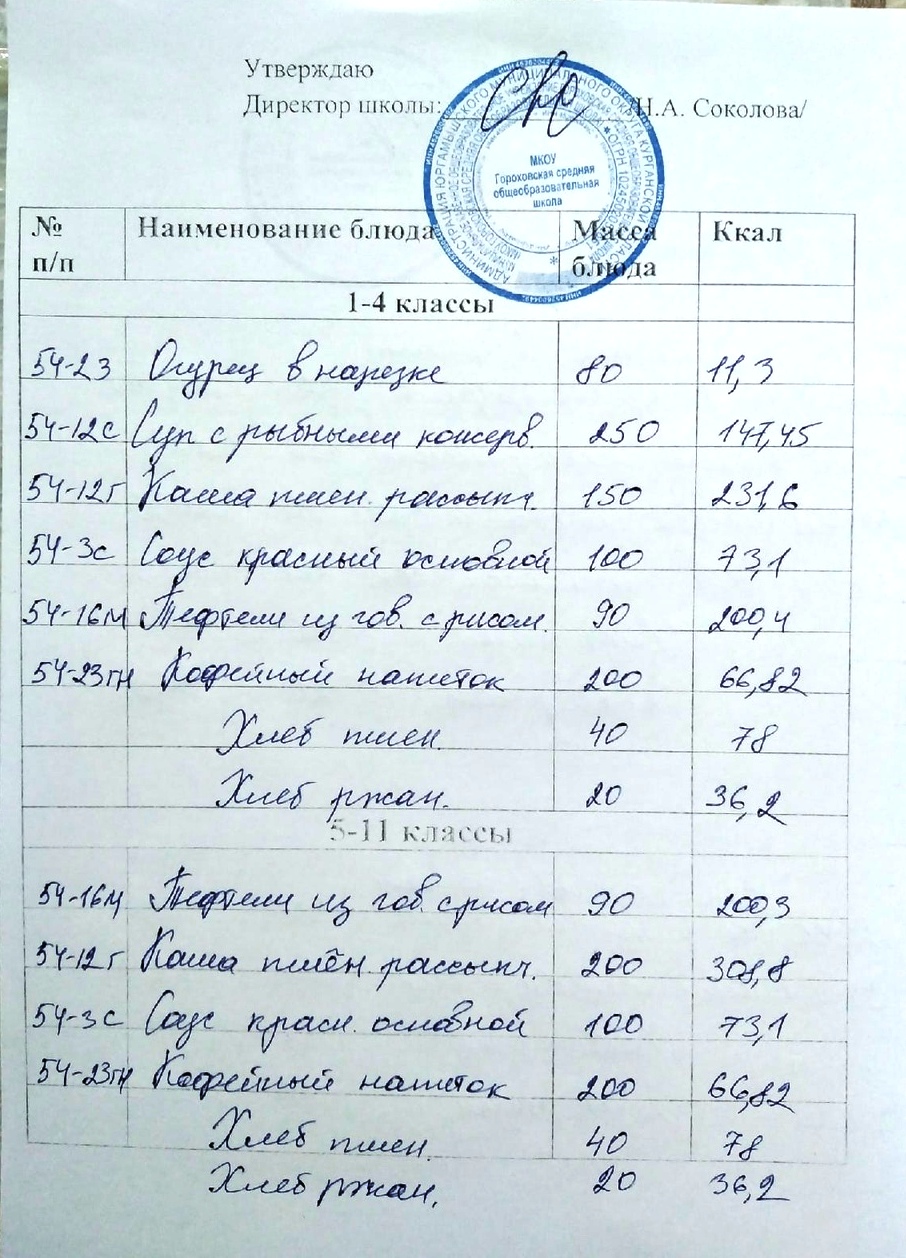 Утверждаю
Директор школы: /Н.А. Соколова/
МКОУ
Гороховская средняя
общеобразовательная
школа
№ п/п Наименование блюда Масса блюда Ккал
1-4 классы
54-23 Огурец в нарезке 80 11,3
54-12с Суп с рыбными консерв. 250 147,45
54-12г Каша пшен. рассыпч. 150 231,6
54-3с Соус красный основной 100 73,1
54-16м Тефтели из гов. с рисом. 90 200,4
54-23гн Кофейный напиток 200 66,82
Хлеб пшен. 40 78
Хлеб ржан. 20 36,2
5-11 классы
54-16м Тефтели из гов. с рисом 90 200,3
54-12г Каша пшён. рассыпч. 200 308,8
54-3с Соус красн. основной 100 73,1
54-23гн Кофейный напиток 200 66,82
Хлеб пшен. 40 78
Хлеб ржан. 20 36,2